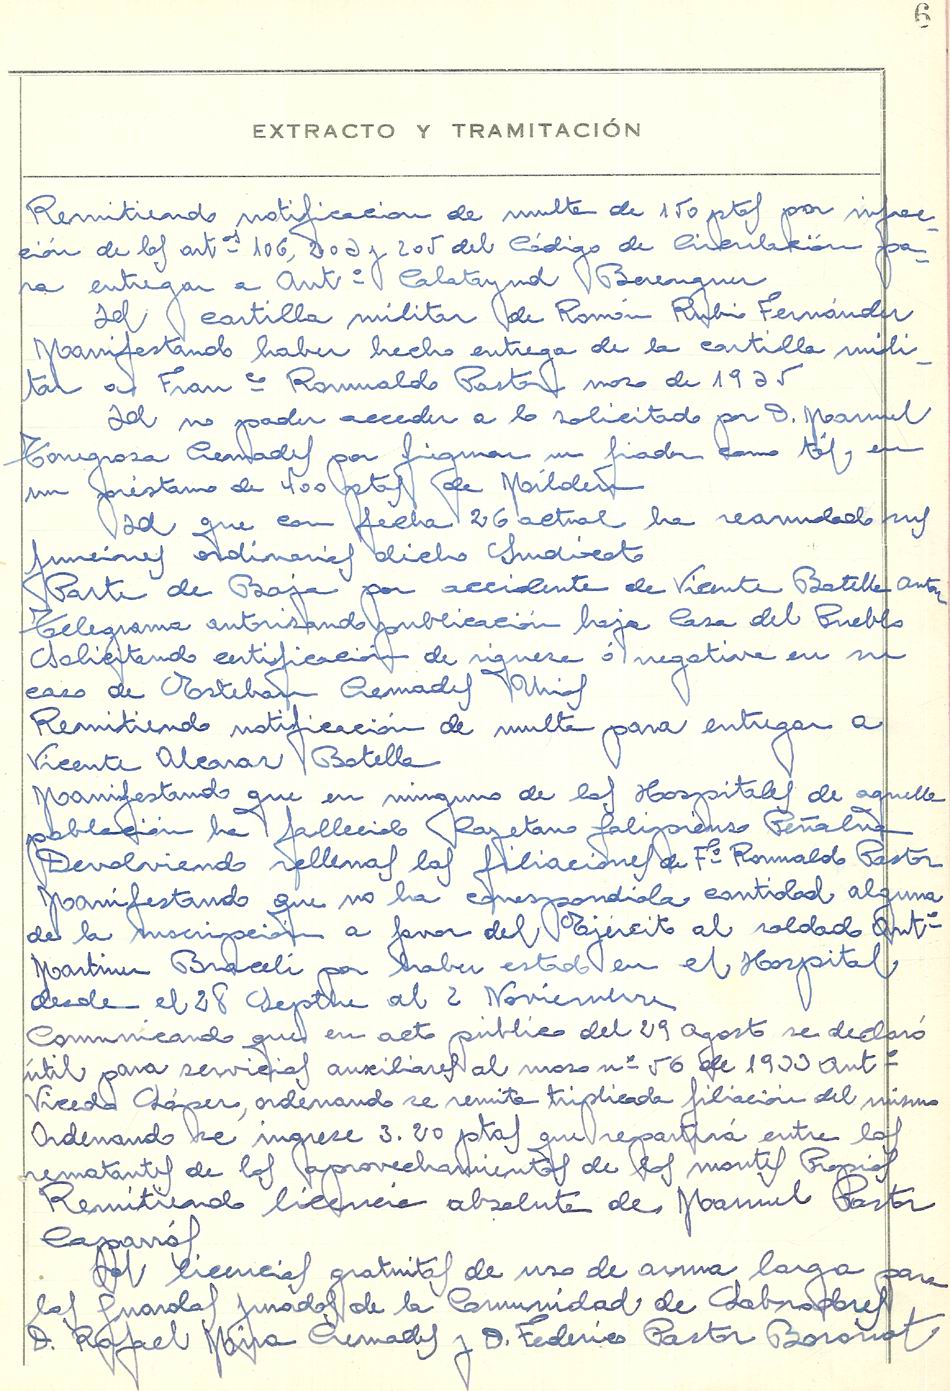 6
EXTRACTO Y TRAMITACIÓN
Remitiendo notificacion de multa de 150 ptas por infrac-
ción de los artºs 106, 202 y 205 del Código de Circulación pa-
ra entregar a Antº Calatayud Berenguer
Id cartilla militar de Román Rubio Fernández
Manifestando haber hecho entrega de la cartilla mili-
tar a Franco Romualdo Pastor mozo de 1935
Id no poder acceder a lo solicitado por D. Manuel
Torregrosa Cremades por figurar un fiador como tal, en
un préstamo de 400 ptas de
Id que con fecha 26 actual ha reanudado sus
funciones ordinarias dicho Sindicato
Parte de Baja por accidente de Vicente Botella Anton
Telegrama autorizando publicación hoja Casa del Pueblo
Solicitando certificación de riqueza ó negativa en su
caso de Esteban Cremades
Remitiendo notificación de multa para entregar a
Vicente Alcaraz Botella
Manifestando que en ninguno de los Hospitales de aquella
población ha fallecido Cayetano Peñalva
Devolviendo rellenas las filiaciones de Fº Romualdo Pastor
Manifestando que no ha correspondido cantidad alguna
de la suscripción a favor del Ejército al soldado Antº
Martinez Braceli por haber estado en el Hospital
desde el 28 Septbre al 2 Noviembre
Comunicando que en acto público del 29 Agosto se declaró
útil para servicios auxiliares al mozo nº 56 de 1933 Antº
Viceda López, ordenando se remita triplicada filiación del mismo
Ordenando se ingrese 3.20 ptas que repartirá entre los
rematantes de los aprovechamientos de los montes Propios
Remitiendo licencia absoluta de Manuel Pastor
Caparrós
Id licencias gratuitas de uso de arma larga para
los Guardas jurados de la Comunidad de Labradores
D. Rafael Mira Cremades y D. Federico Pastor Boronat